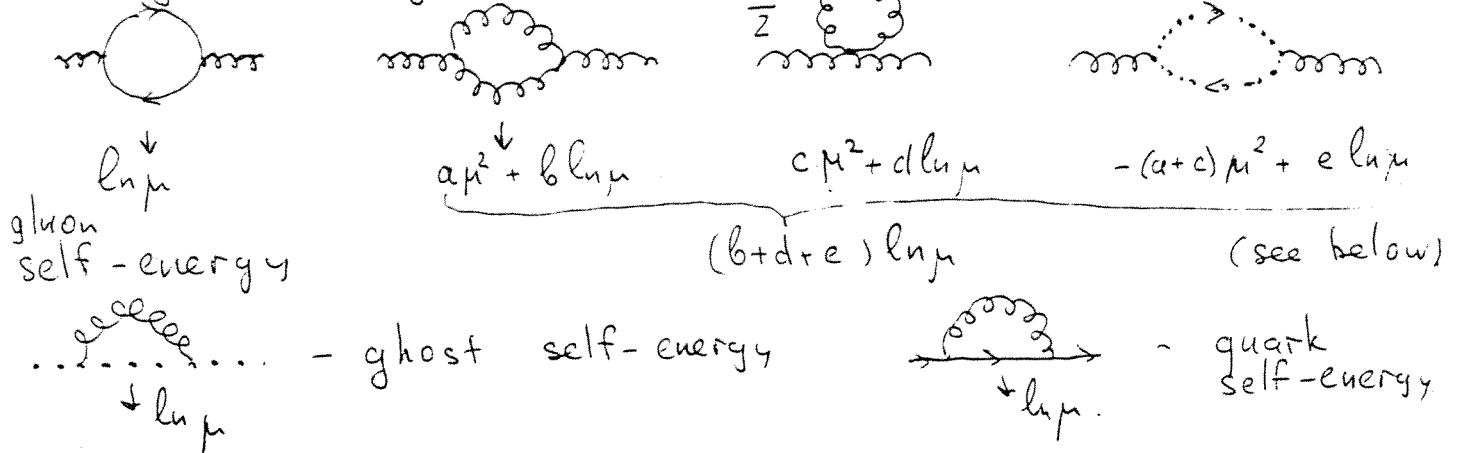 2
ln μ
aμ² + b ln μ
cμ² + d ln μ
-(a+c) μ² + e ln μ
gluon
self-energy
(b+d+e) ln μ
(see below)
- ghost self-energy
- quark
self-energy
ln μ
ln μ.